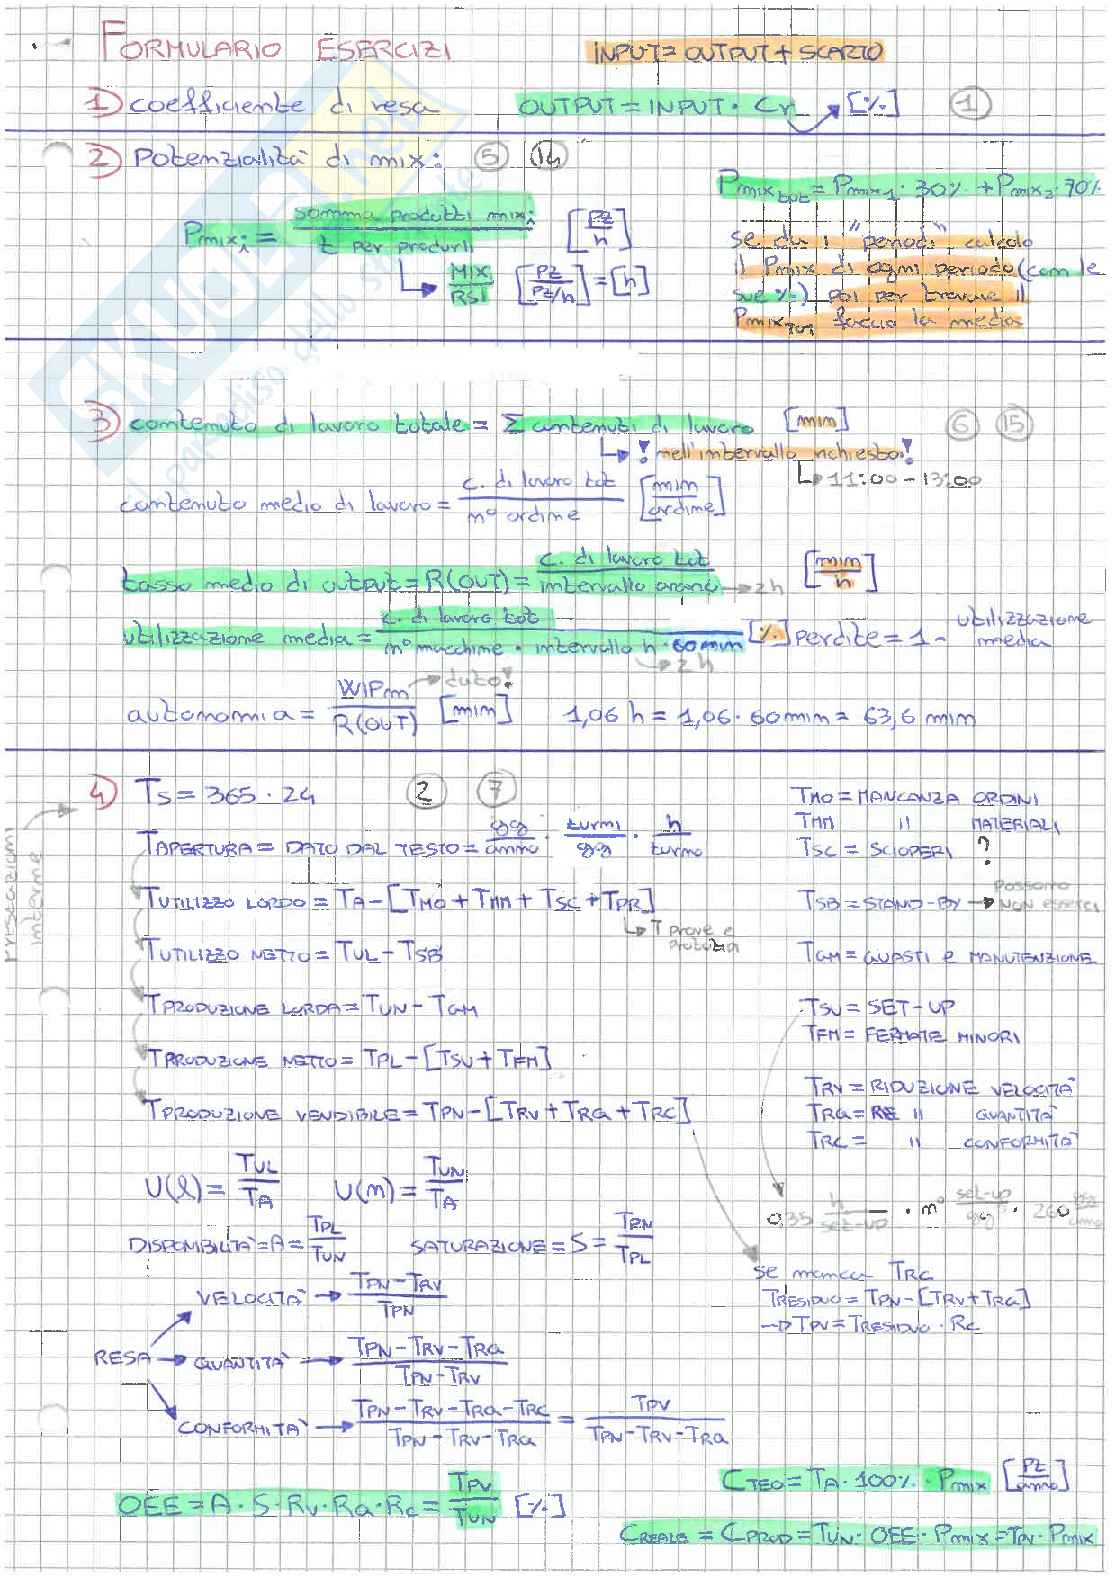 FORMULARIO ESERCIZI
INPUT = OUTPUT + SCARTO
1) coefficiente di resa OUTPUT = INPUT · Cr → [%] 1
2) Potenzialità di mix: 5 14
Pmix tot = Pmix1 · 30% + Pmix2 · 70%
Pmix i = somma prodotti mix i / t per produrli [pz/h]
→ MIX/RSI [pz / pz/h] = [h]
se dà i "periodi" calcolo
il Pmix di ogni periodo (con le
sue %) poi per trovare il
Pmix TOT faccio la media
3) contenuto di lavoro totale = Σ contenuti di lavoro [min] 6 15
→ ! nell'intervallo richiesto!
→ 11:00 - 13:00
contenuto medio di lavoro = c. di lavoro tot / n° ordine [min/ordine]
tasso medio di output = R(OUT) = c. di lavoro tot / intervallo orario → 2h [min/h]
utilizzazione media = c. di lavoro tot / n° macchine · intervallo h · 60 min [%] perdite = 1 - utilizzazione media
→ 2h
autonomia = WIPm / R(OUT) [min] 1,06 h = 1,06 · 60 min = 63,6 min
→ dato!
4) Ts = 365 · 24 2 7
TAPERTURA = DATO DAL TESTO = gg/anno · turni/gg · h/turno
TUTILIZZO LORDO = TA - [TMO + TMM + TSC + TPR]
→ T prove e
TUTILIZZO NETTO = TUL - TSB
TPRODUZIONE LORDA = TUN - TGM
TPRODUZIONE NETTO = TPL - [TSU + TFM]
TPRODUZIONE VENDIBILE = TPN - [TRV + TRQ + TRC]
prestazioni
interne
TMO = MANCANZA ORDINI
TMM " MATERIALI
TSC = SCIOPERI ?
TSB = STAND-BY → Possono NON esserci
TGM = GUASTI e MANUTENZIONE
TSU = SET-UP
TFM = FERMATE MINORI
TRV = RIDUZIONE VELOCITÀ
TRQ = RE " QUANTITÀ
TRC = " CONFORMITÀ
U(l) = TUL / TA U(n) = TUN / TA
0,35 h/set-up · n° set-up/gg · 260 gg/anno
DISPONIBILITÀ = A = TPL / TUN SATURAZIONE = S = TPN / TPL
se manca TRC
TRESIDUO = TPN - [TRV + TRQ]
→ TPV = TRESIDUO · Rc
VELOCITÀ → TPN - TRV / TPN
RESA → QUANTITÀ → TPN - TRV - TRQ / TPN - TRV
CONFORMITÀ → TPN - TRV - TRQ - TRC / TPN - TRV - TRQ = TPV / TPN - TRV - TRQ
OEE = A · S · Rv · RQ · Rc = TPV / TUN [%]
CTEO = TA · 100% · Pmix [pz/anno]
CREALE = CPROD = TUN · OEE · Pmix = TPV · Pmix